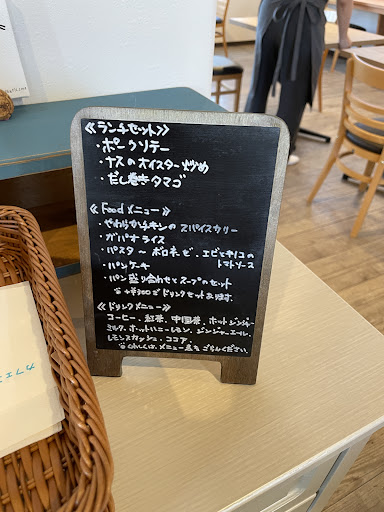 ≪ランチセット≫
・ポークソテー
・ナスのオイスター炒め
・だし巻きタマゴ
≪Foodメニュー≫
・やわらかチキンのスパイスカリー
・ガパオライス
・パスタ〜ボロネーゼ、エビとキノコの
トマトソース
・パンケーキ
・パン盛り合わせとスープのセット
+¥300でドリンクセットあります。
≪ドリンクメニュー≫
コーヒー、紅茶、中国茶、ホットジンジャー
ミルク、ホットハニーレモン、ジンジャーエール、
レモンスカッシュ、ココア
くわしくは、メニュー表をごらんください。
カフェ